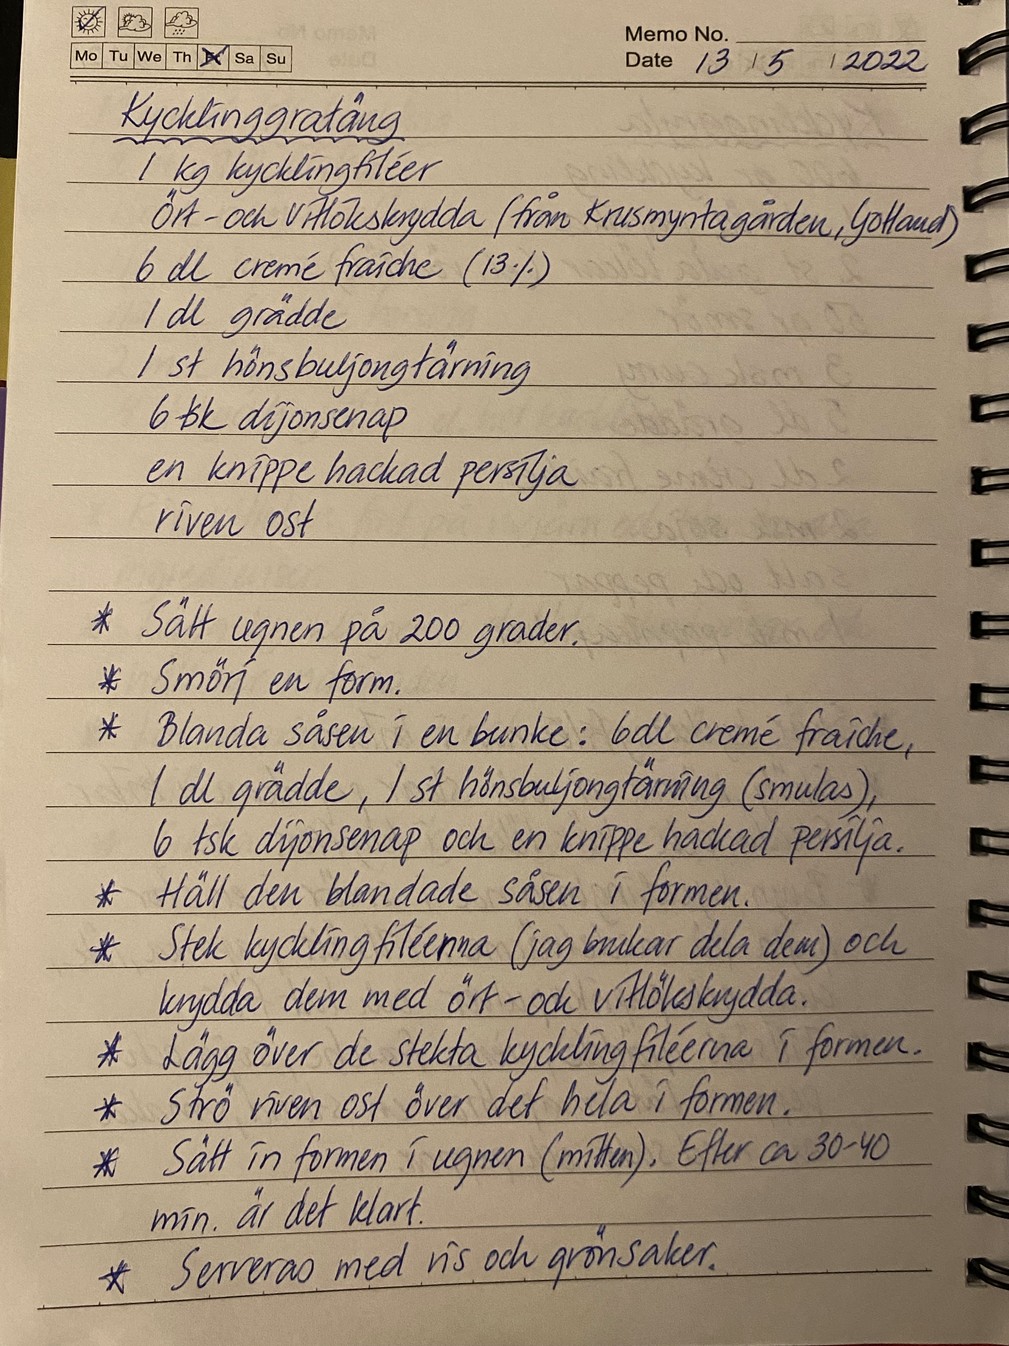 Memo No.
Mo Tu We Th Fr Sa Su
Date 13 / 5 / 2022
Kycklinggratäng
1 kg kycklingfiléer
Ört- och vitlökskrydda (från Krusmyntagården, Gotland)
6 dl cremé fraîche (13%)
1 dl grädde
1 st hönsbuljongtärning
6 tsk dijonsenap
en knippe hackad persilja
riven ost
* Sätt ugnen på 200 grader.
* Smörj en form.
* Blanda såsen i en bunke: 6dl cremé fraîche,
1 dl grädde, 1 st hönsbuljongtärning (smulas),
6 tsk dijonsenap och en knippe hackad persilja.
* Häll den blandade såsen i formen.
* Stek kycklingfiléerna (jag brukar dela dem) och
krydda dem med ört- och vitlökskrydda.
* Lägg över de stekta kycklingfiléerna i formen.
* Strö riven ost över det hela i formen.
* Sätt in formen i ugnen (mitten). Efter ca 30-40
min. är det klart.
* Serveras med ris och grönsaker.